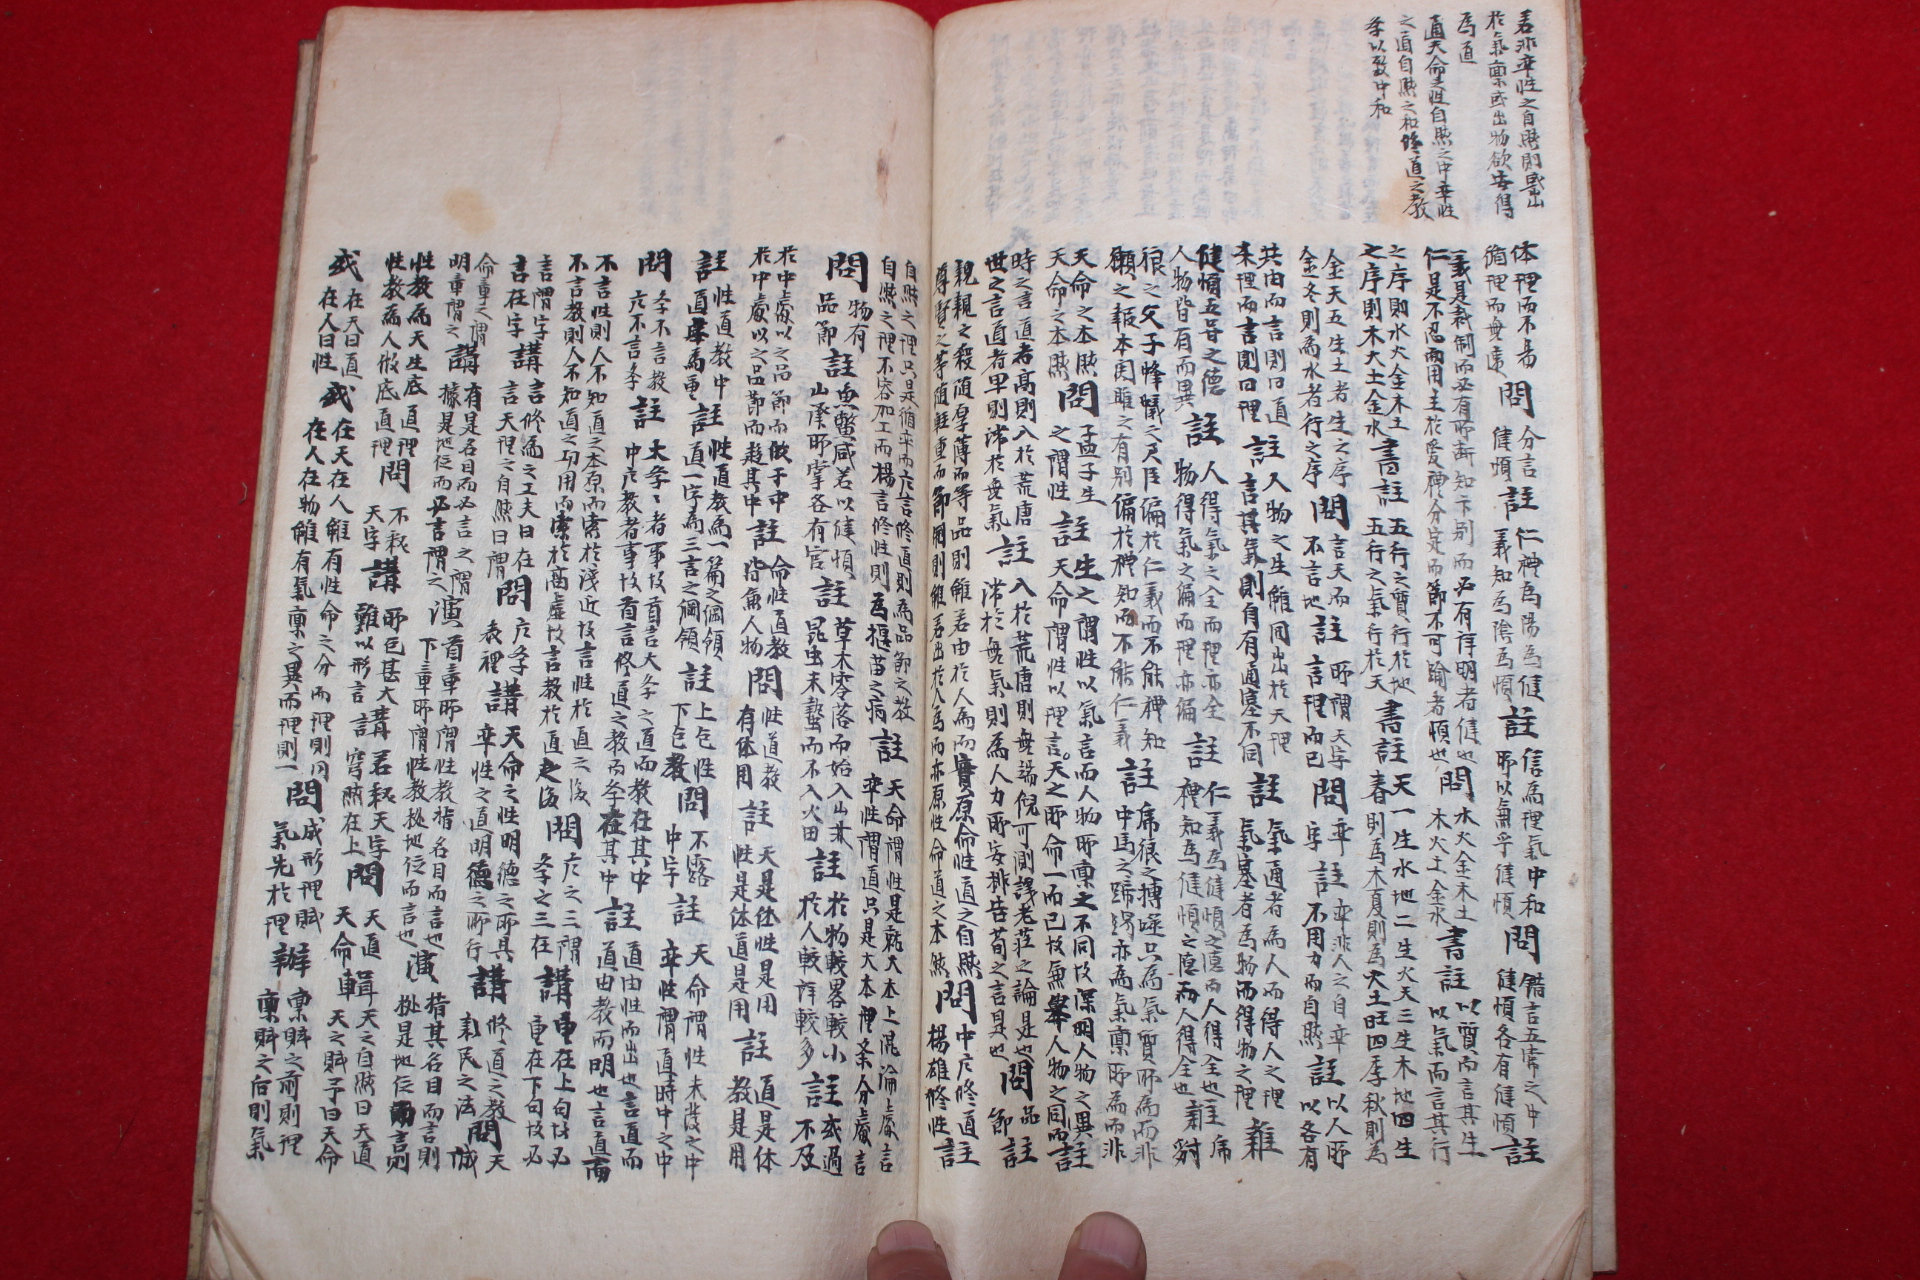 若非率性之自然則或出
於氣稟或出物欲安得
為道
道天命之性自然之中率性
之道自然之和修道之教
季以致中和
体理而不易
循理而無違
問
分言
健順
註
仁禮為陽為健
義知為陰為順
註
信為理氣中和
所以無乎健順
問
錯言五常之中
健順各有健順
註
義是裁制而必有所斷知卞別而必有詳明者健也
仁是不忍而用主於愛禮分定而節不可踰者順也
問
水火金木土
木火土金水
書註
以質而言其生
以氣而言其行
之序則水火金木土
之序則木火土金水
書註
五行之質行於地
五行之氣行於天
書註
天一生水地二生火天三生木地四生
春則為木夏則為火土旺四季秋則為
金天五生土者生之序
金冬則為水者行之序
問
言天而
不言地
註
所謂天字
言理而已
問
率
字
註
率非人之自率
不用力而自然
註
以人所
以各有
共由而言則曰道
本理而言則曰理
註
人物之生雖同出於天理
言其氣則自有通塞不同
註
氣通者為人而得人之理
氣塞者為物而得物之理
難
健順五常之德
人物皆有而異
註
人得氣之全而理亦全
物得氣之偏而理亦偏
註
仁義為健順之德而人得全也
禮知為健順之德而人得全也
難
狼之父子蜂蟻之君臣偏於仁義而不能禮知
願之報本関雎之有別偏於禮知而不能仁義
註
席狼之搏噬只為氣質所為而非
中馬之蹄踢亦為氣稟所為而非
天命之本然
天命之本然
問
孟子生
之謂性
註
生之謂性以氣言而人物所稟之不同故深明人物之異
言天命謂性以理言。天之所命一而已故無舉人物之同而
註
時之言道者高則入於荒唐
世之言道者卑則滯於無氣
註
入於荒唐則無端倪可測謀老莊之論是也
滯於無氣則為人力所安排告荀之言是也
問
品
節
註
親親之殺随厚薄而等品則雖若由於人為而實原命性道之自然
尊賢之等随輕重而節制則雖若出於人為而亦原性命道之本然
問
中庸修道
楊雄修性
註
自然之理只是循率而庸言修道則為品節之教
自然之理不容加工而楊言修性則為揠苗之病
註
天命謂性是就大本上混淪處言
率性謂道只是大本裡条分處言
問
物有
品節
註
魚鱉咸若以健順
山廩所掌各有官
註
草木零落而始入山林
昆虫未蟄而不入火田
註
於物較畧較小
於人較詳較多
註
或過
不及
於中處以之品節而俶于中
於中處以之品節而趨其中
註
命性道教
皆無人物
問
性道教
有体用
註
天是体性是用
性是体道是用
註
道是体
教是用
註
性道教中
道率為重
註
性道教為一篇之綱領
道一字為三言之綱領
註
上包性
下包教
問
不露
中字
註
天命謂性未發之中
率性謂道時中之中
問
季不言教
庸不言季
註
大季季者事故首言大季之道而教在其中
中庸教者事故首言修道之教而季在其中
註
道由性而出也言道而
道由教而明也言道而
不言性則人不知道之本原而索於淺近故言性於道之後
不言教則人不知道之功用而索於高虛故言教於道之後
問
庸之三謂
季之三在
講
重在上句故必
重在下句故必
言謂字
言在字
講
言修為之工夫曰在
言天理之自然曰謂
問
庸季
表裡
講
天命之性明德之所具
率性之道明德之所行
講
修道之教
新民之法
問
天
誠
命章之謂
明章謂之
講
有是名目而必言之謂
據是地位而必言謂之
演
首章所謂性教指名目而言也
下章所謂性教據地位而言也
演
指其名目而言則
據是地位而言則
性教為天生底道理
性教為人做底道理
問
不釋
天字
講
所包甚大
難以形言
講
若釋天字
言穹然在上
問
天道
天命
輯
天之自然曰天道
天之賦予曰天命
或
在天曰道
在人曰性
或
在天在人雖有性命之分而理則同
在人在物雖有氣稟之異而理則一
問
成形理賦
氣先於理
辨
稟賦之前則理
稟賦之后則氣